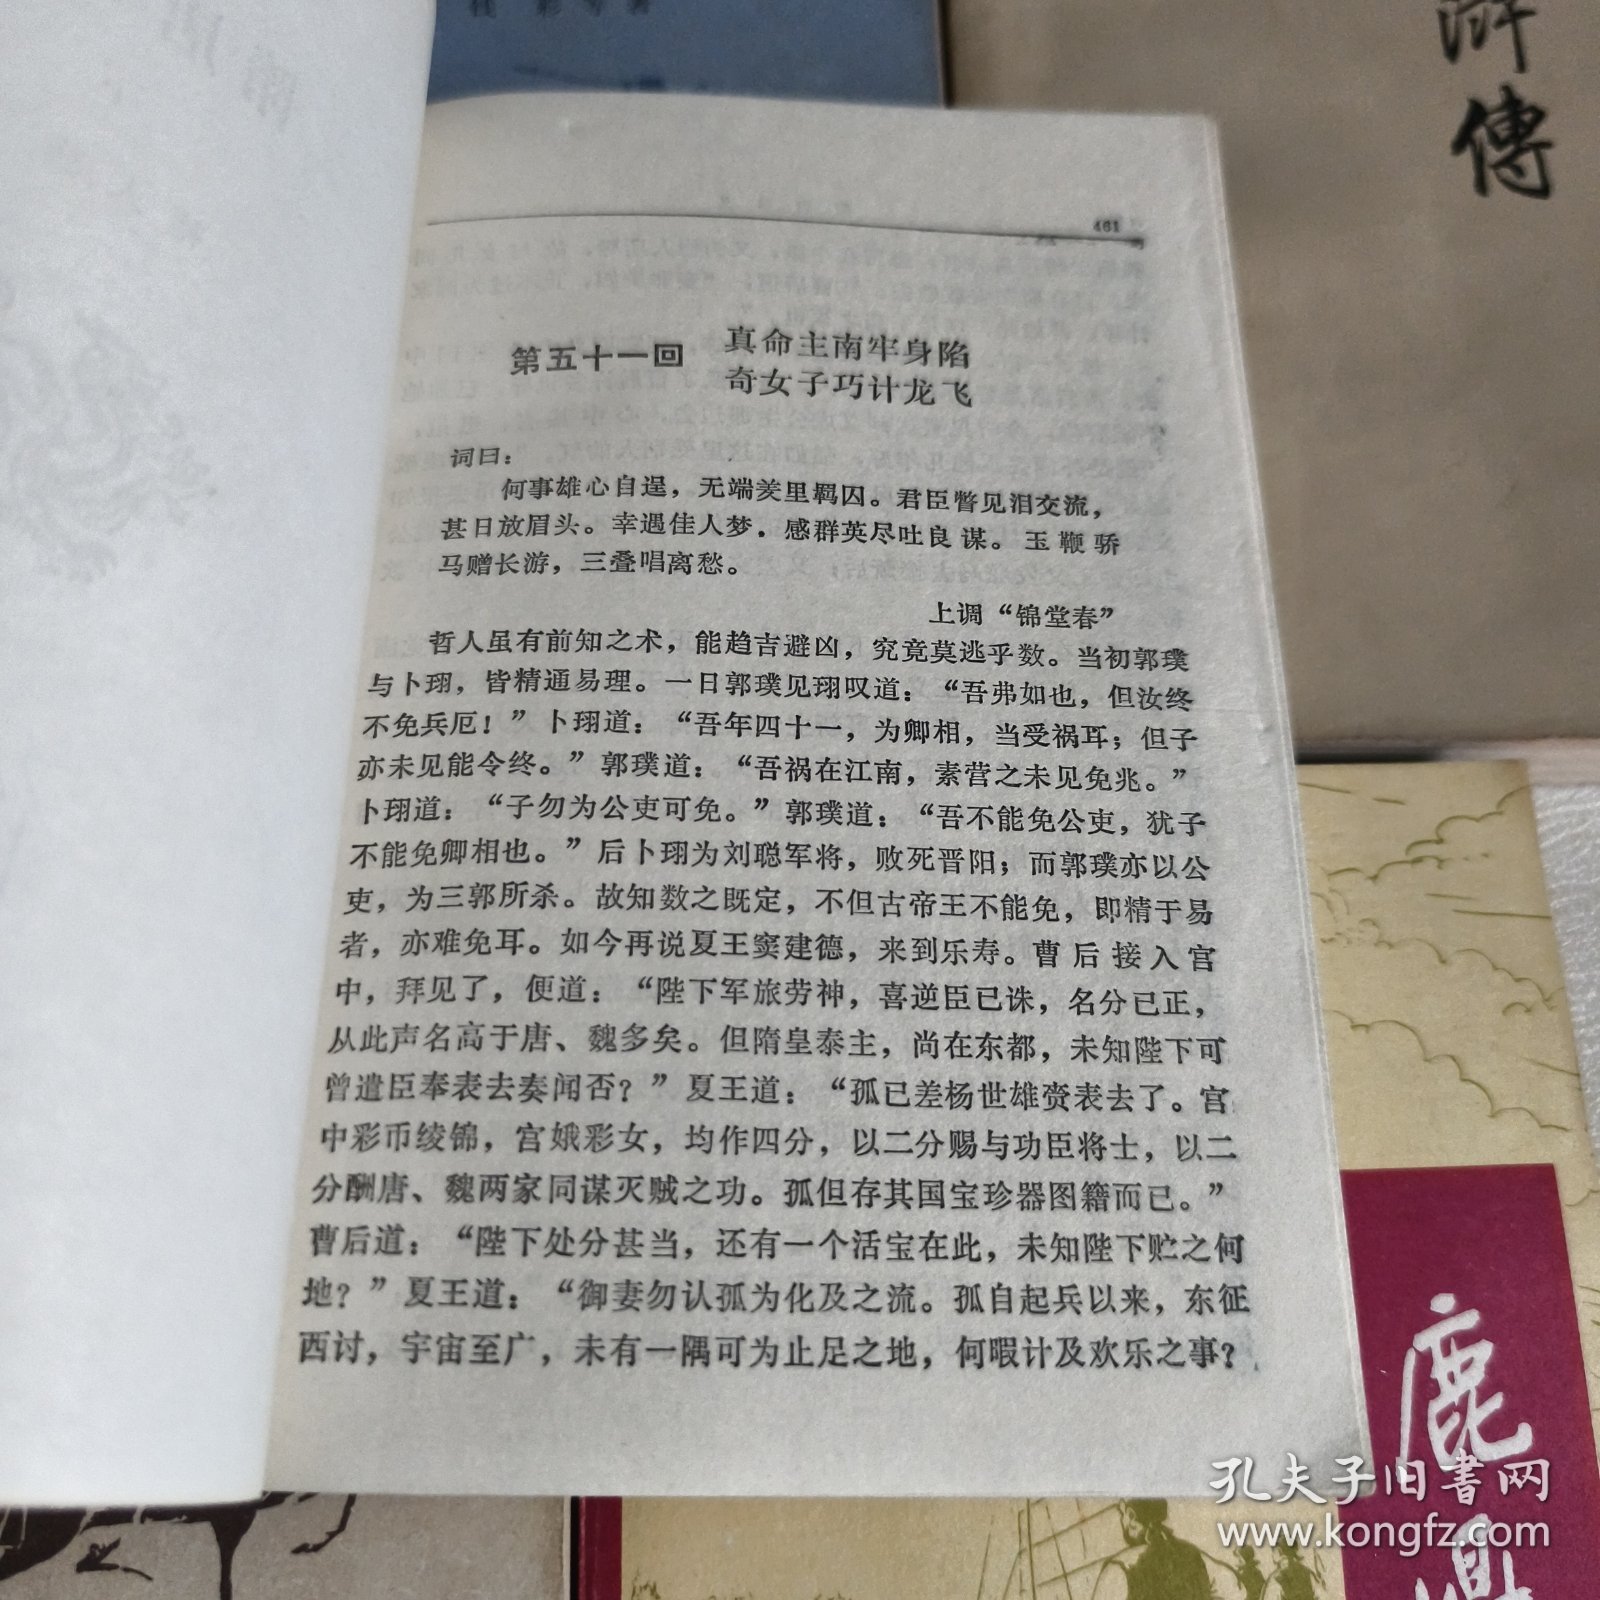 傳
461
第五十一回
真命主南牢身陷
奇女子巧计龙飞
词曰：
何事雄心自逞，无端羑里羁囚。君臣瞥见泪交流，
甚日放眉头。幸遇佳人梦．感群英尽吐良谋。玉鞭骄
马赠长游，三叠唱离愁。
上调“锦堂春”
哲人虽有前知之术，能趋吉避凶，究竟莫逃乎数。当初郭璞
与卜珝，皆精通易理。一日郭璞见珝叹道：“吾弗如也，但汝终
不免兵厄！”卜珝道：“吾年四十一，为卿相，当受祸耳；但子
亦未见能令终。”郭璞道：“吾祸在江南，素营之未见免兆。”
卜珝道：“子勿为公吏可免。”郭璞道：“吾不能免公吏，犹子
不能免卿相也。”后卜珝为刘聪军将，败死晋阳；而郭璞亦以公
吏，为三郭所杀。故知数之既定，不但古帝王不能免，即精于易
者，亦难免耳。如今再说夏王窦建德，来到乐寿。曹后接入宫
中，拜见了，便道：“陛下军旅劳神，喜逆臣已诛，名分已正，
从此声名高于唐、魏多矣。但隋皇泰主，尚在东都，未知陛下可
曾遣臣奉表去奏闻否？”夏王道：“孤已差杨世雄赍表去了。宫
中彩币绫锦，宫娥彩女，均作四分，以二分赐与功臣将士，以二
分酬唐、魏两家同谋灭贼之功。孤但存其国宝珍器图籍而已。”
曹后道：“陛下处分甚当，还有一个活宝在此，未知陛下贮之何
地？”夏王道：“御妻勿认孤为化及之流。孤自起兵以来，东征
西讨，宇宙至广，未有一隅可为止足之地，何暇计及欢乐之事？
鹿
孔夫子旧书网
www.kongfz.com